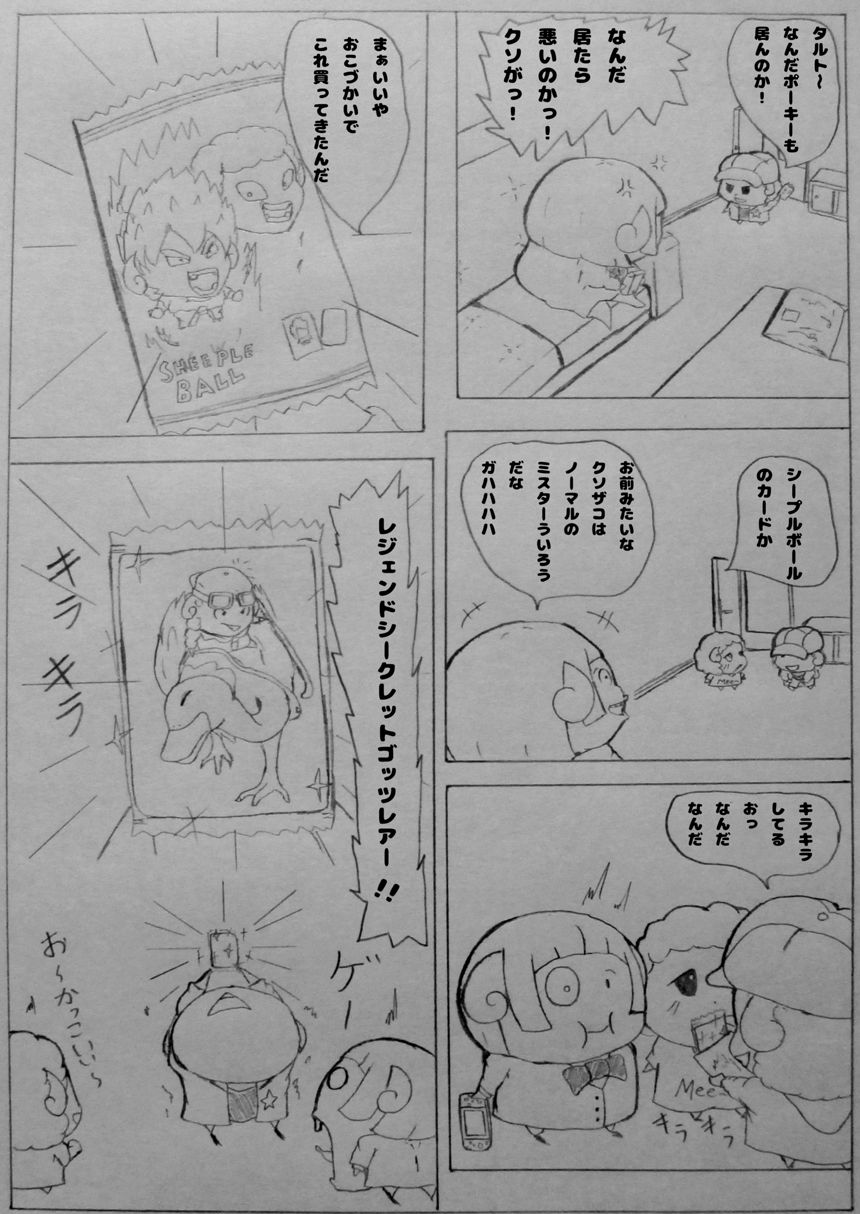 タルト～
なんだポーキーも
居んのか！
なんだ
居たら
悪いのかっ！
クソがっ！
まぁいいや
おこづかいで
これ買ってきたんだ
SHEEPLE
BALL
シープルボール
のカードか
お前みたいな
クソザコは
ノーマルの
ミスターういろう
だな
ガハハハハ
Mee~
キラキラ
してる
おっ
なんだ
なんだ
Mee~
キラ
キラ
レジェンドシークレットゴッツレアー！！
キラ
キラ
ゲー
お～かっこいい～